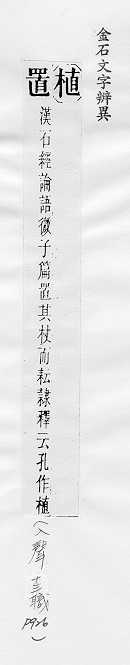 金石文字辨異
〔植〕置
漢石經論語微子篇置其杖而耘隸釋云孔作植
(入聲 十三職 P926)